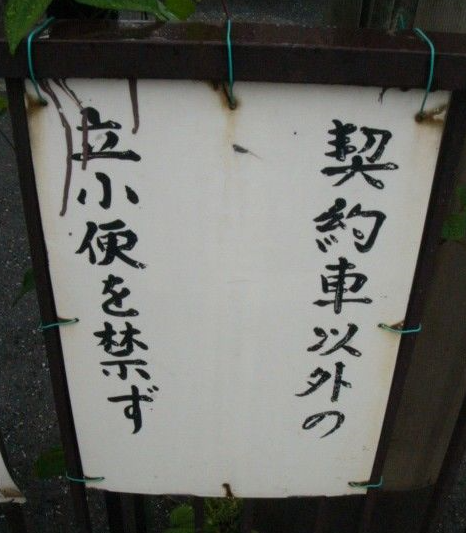 契約車以外の
立小便を禁ず